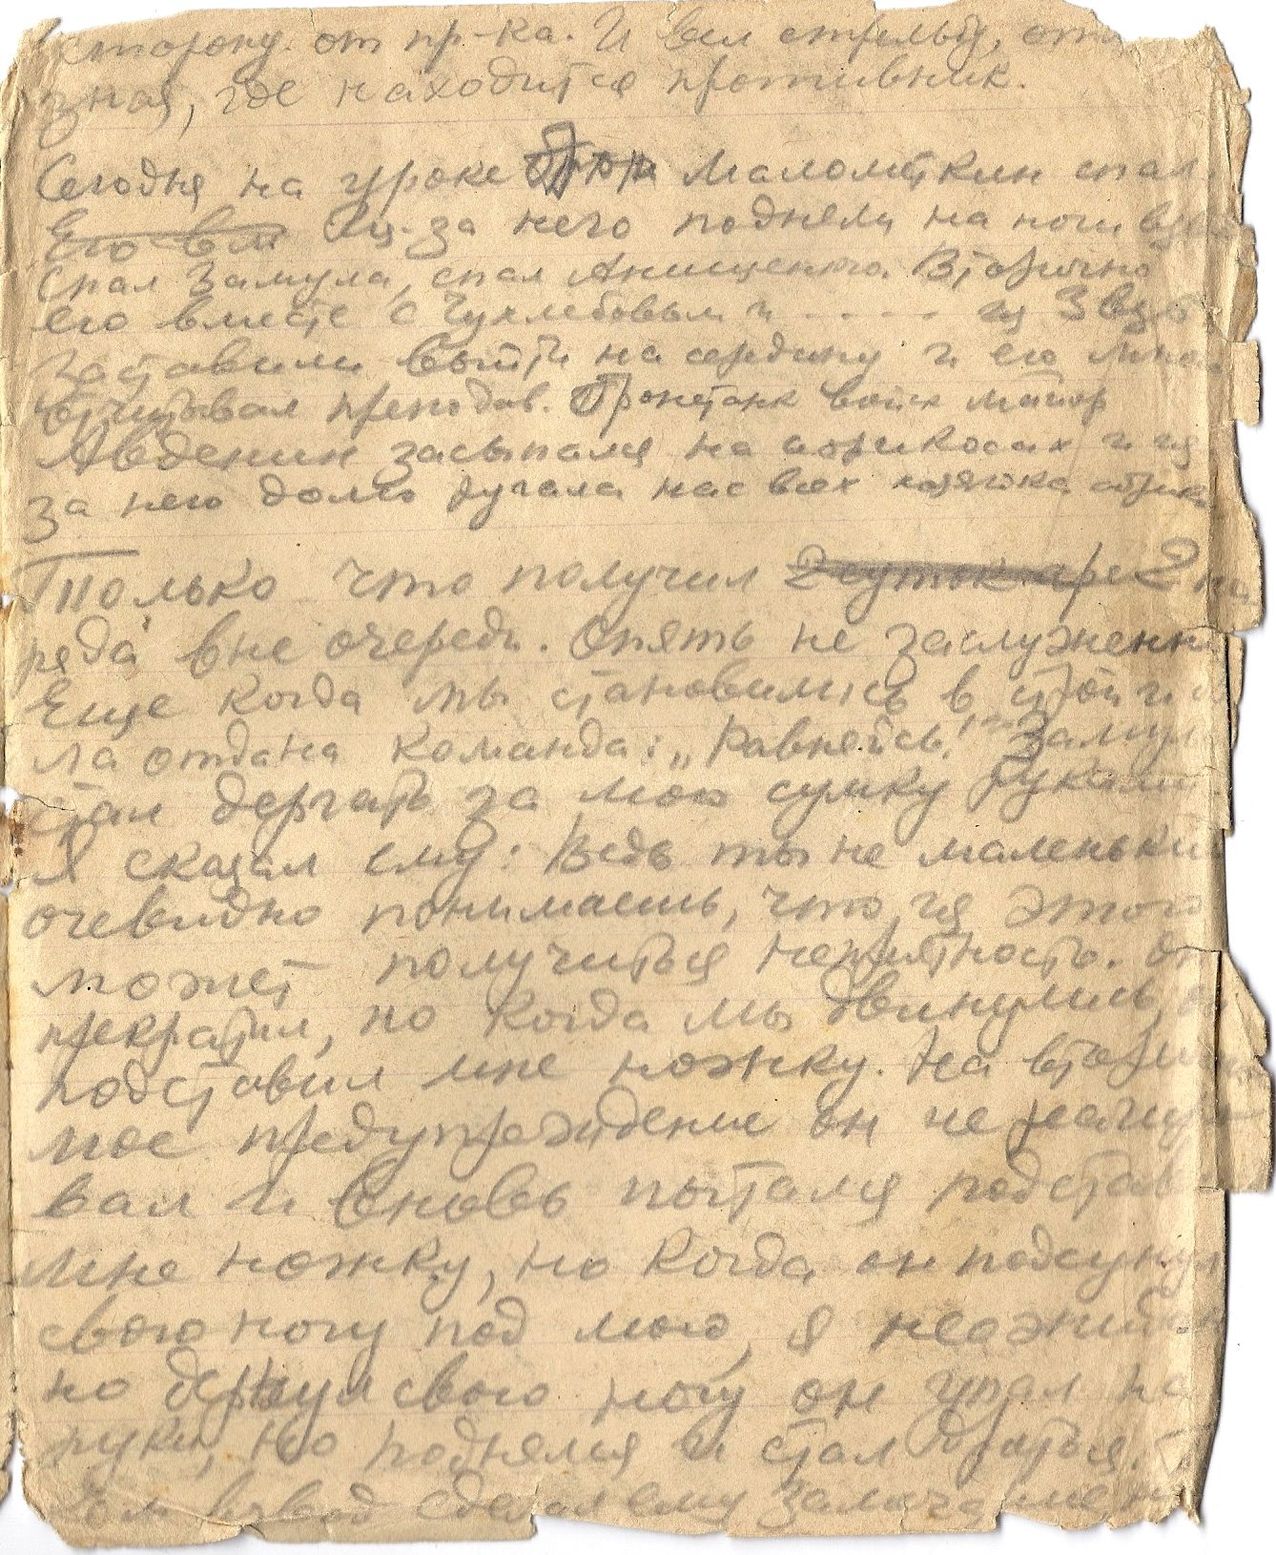 сторону от пр-ка. И вел стрельбу,
зная, где находится противник.
Сегодня на уроке Маломёткин спал.
Его вм Из-за него подняли на ноги
Спал Замула, спал Анищенко. Вторично
его вместе с Чухлебовым и - - - - из 3 взво
заставили выйти на середину и его
отчитывал преподав. Бронетанк войск майор
Авденин засыпался на абрикосах и из
за него долго ругала нас всех хозяйка абрико
Только что получил 2 суток аре 2 на
ряда вне очереди. Опять не заслуженно
Еще когда мы становились в строй и
ла отдана команда: „Равняйсь!" Замула
стал дергать за мою сумку руками
Я сказал ему: Ведь ты не маленький
очевидно понимаешь, что из этого
может получиться неприятность. Он
прекратил, но когда мы двинулись,
подставил мне ножку. На вторич
мое предупреждение он не реагиро
вал и вновь пытался подстав
мне ножку, но когда он подсунул
свою ногу под мою, я неожидан
но дернул свою ногу он упал на
руки, но поднялся и стал драться.
взвод сделал ему замечание